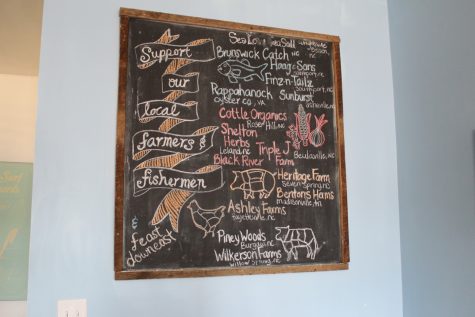 Support
our
local
farmers &
fishermen
& feast
downeast
Sea Love Sea Salt
Brunswick Catch, NC
Haag & Sons
Finz-n-Tailz
Southport, NC
Rappahanock
Oyster Co, VA
Sunburst
Cottle Organics
Rose Hill, NC
Shelton
Herbs
Leland, NC
Triple J
Beulaville, NC
Black River Farm
Heritage Farm
Seven Springs, NC
Benton's Hams
Madisonville, TN
Ashley Farms
Fayetteville, NC
Piney Woods
Burgaw, NC
Wilkerson Farms
Willow Spring, NC